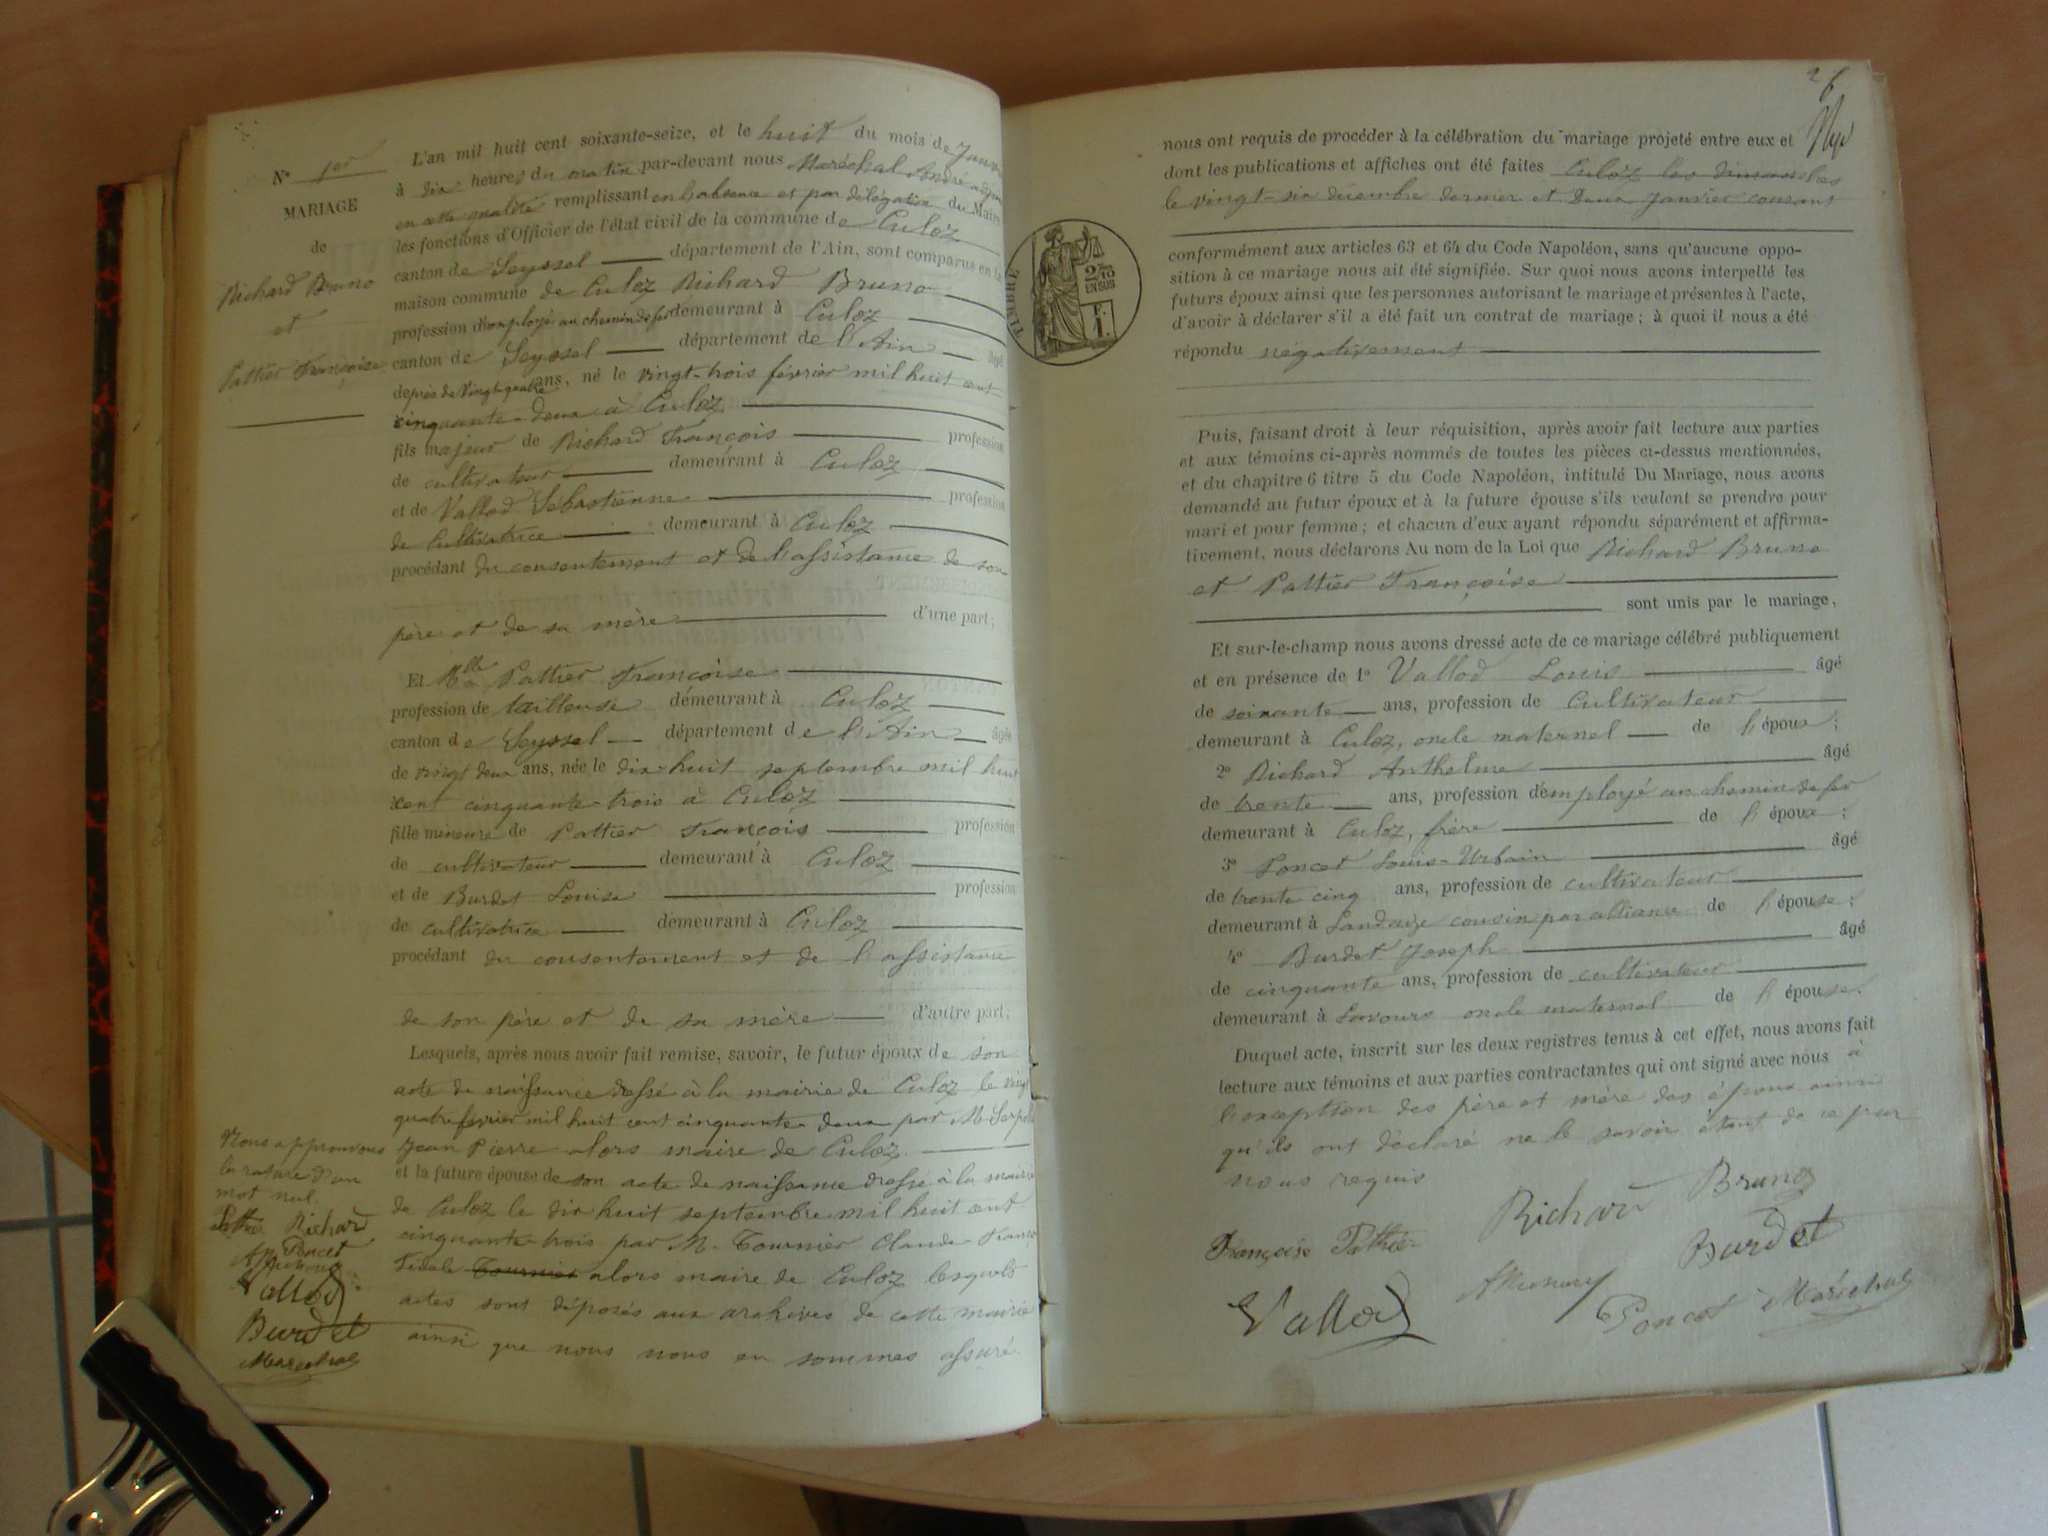 N° 1er
MARIAGE
de
Richard Bruno
et
Pattier Françoise
L'an mil huit cent soixante-seize, et le huit du mois de Janvier
à dix heures du matin par-devant nous Maréchal André adjoint
en cette qualité remplissant en l'absence et par délégation du Maire
les fonctions d'Officier de l'état civil de la commune de Culoz
canton de Seyssel département de l'Ain, sont comparus en la
maison commune de Culoz Richard Bruno
profession d'employé au chemin de fer demeurant à Culoz
canton de Seyssel département de l'Ain âgé
de près de vingt-quatre ans, né le vingt-trois février mil huit cent
cinquante-deux à Culoz
fils majeur de Richard François profession
de cultivateur demeurant à Culoz
et de Vallod Sébastienne profession
de cultivatrice demeurant à Culoz
procédant du consentement et de l'assistance de son
père et de sa mère d'une part;
Et Mlle Pattier Françoise
profession de tailleuse demeurant à Culoz
canton de Seyssel département de l'Ain âgée
de vingt deux ans, née le dix-huit septembre mil huit
cent cinquante-trois à Culoz
fille mineure de Pattier François profession
de cultivateur demeurant à Culoz
et de Burdet Louise profession
de cultivatrice demeurant à Culoz
procédant du consentement et de l'assistance
de son père et de sa mère d'autre part;
Lesquels, après nous avoir fait remise, savoir, le futur époux de son
acte de naissance dressé à la mairie de Culoz le vingt
quatre février mil huit cent cinquante-deux par M.
Jean Pierre alors maire de Culoz
et la future épouse de son acte de naissance dressé à la mairie
de Culoz le dix huit septembre mil huit cent
cinquante-trois par M. Tournier Claude Franço
Fidèle Tournier alors maire de Culoz lesquels
actes sont déposés aux archives de cette mairie
ainsi que nous nous en sommes assuré
Nous approuvons
la rature d'un
mot nul.
Richard
Poncet
Vallod
Burdet
Maréchal
26
nous ont requis de procéder à la célébration du mariage projeté entre eux et
dont les publications et affiches ont été faites Culoz les dimanches
le vingt-six décembre dernier et deux Janvier courant
TIMBRE
2/10
EN SUS
F.
1.
conformément aux articles 63 et 64 du Code Napoléon, sans qu'aucune oppo-
sition à ce mariage nous ait été signifiée. Sur quoi nous avons interpellé les
futurs époux ainsi que les personnes autorisant le mariage et présentes à l'acte,
d'avoir à déclarer s'il a été fait un contrat de mariage; à quoi il nous a été
répondu négativement
Puis, faisant droit à leur réquisition, après avoir fait lecture aux parties
et aux témoins ci-après nommés de toutes les pièces ci-dessus mentionnées,
et du chapitre 6 titre 5 du Code Napoléon, intitulé Du Mariage, nous avons
demandé au futur époux et à la future épouse s'ils veulent se prendre pour
mari et pour femme; et chacun d'eux ayant répondu séparément et affirma-
tivement, nous déclarons Au nom de la Loi que Richard Bruno
et Pattier Françoise
sont unis par le mariage,
Et sur-le-champ nous avons dressé acte de ce mariage célébré publiquement
et en présence de 1° Vallod Louis âgé
de soixante ans, profession de Cultivateur
demeurant à Culoz, oncle maternel de l'époux;
2° Richard Anthelme âgé
de trente ans, profession d'employé au chemin de fer
demeurant à Culoz, frère de l'époux;
3° Poncet Louis-Urbain âgé
de trente cinq ans, profession de cultivateur
demeurant à Landaize cousin par alliance de l'épouse;
4° Burdet Joseph âgé
de cinquante ans, profession de cultivateur
demeurant à Lavours oncle maternel de l'épouse.
Duquel acte, inscrit sur les deux registres tenus à cet effet, nous avons fait
lecture aux témoins et aux parties contractantes qui ont signé avec nous à
l'exception des père et mère des époux ainsi
qu'ils ont déclaré ne le savoir étant de ce par
nous requis
Richard Bruno
Françoise Pattier
Burdet
Vallod
Poncet Maréchal